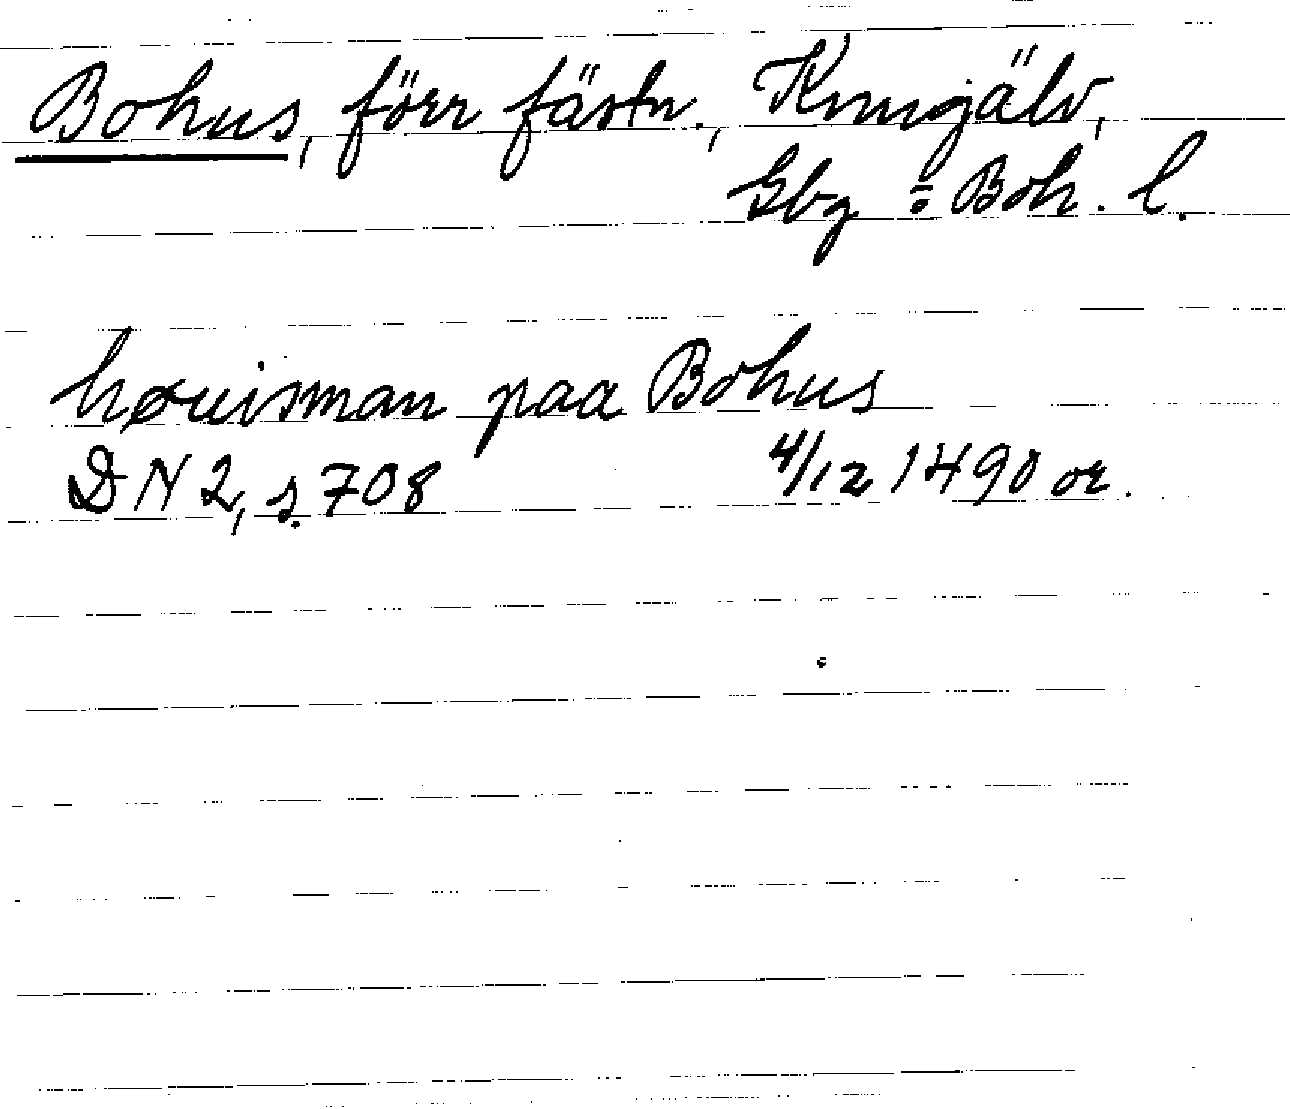 Bohus, förr fästn., Kungälv,
Gbg o. Boh. l.
høuisman paa Bohus
DN 2, s. 708 4/12 1490 or.